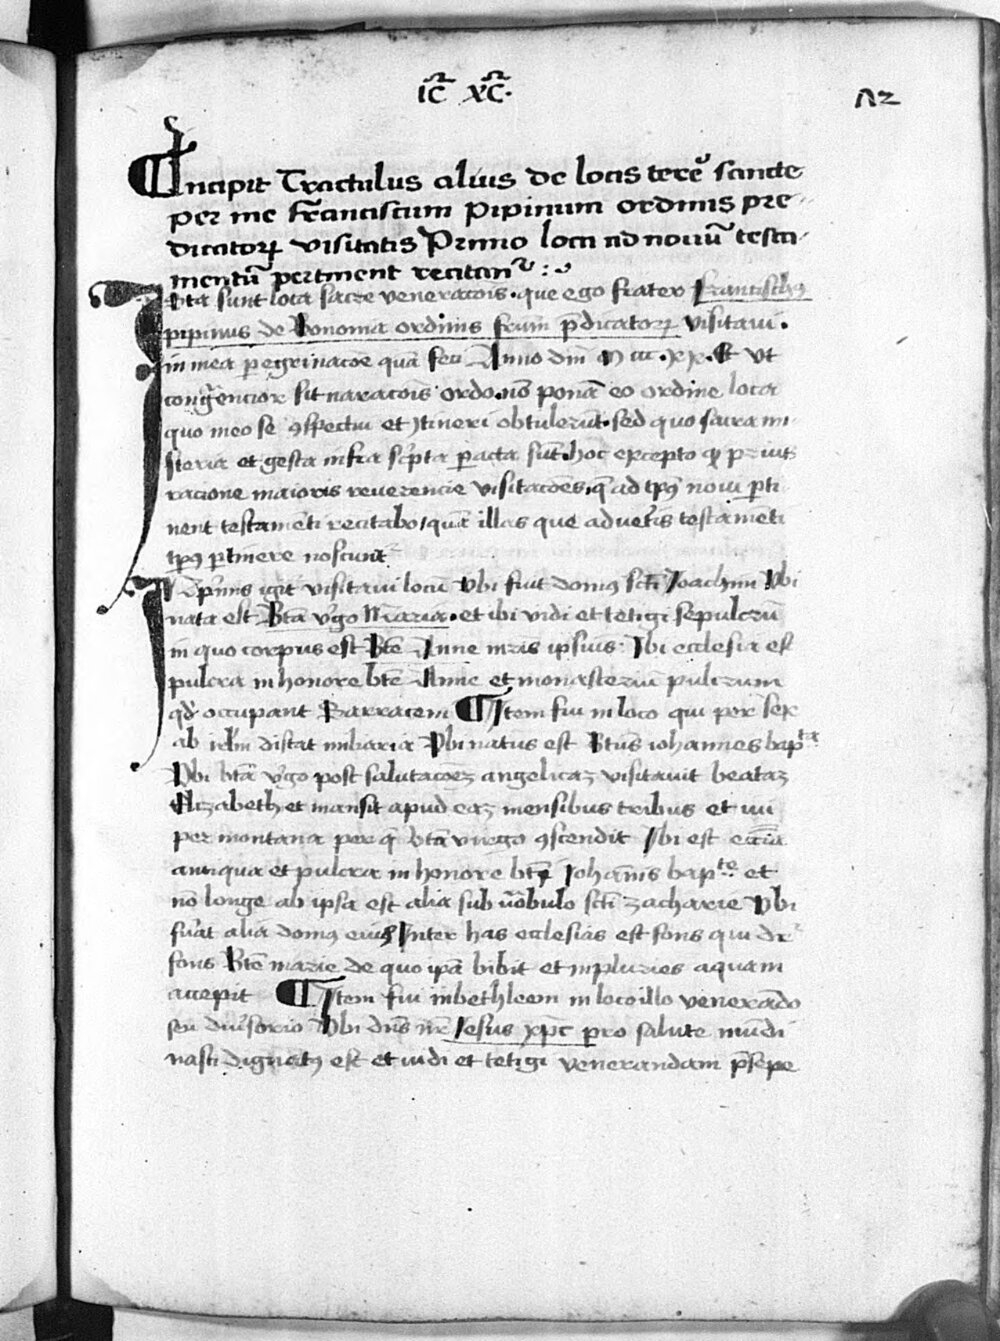 ic̄ xc̄.
Incipit Tractulus alius de locis tere᷒ sancte
per me Franciscum Pipinum ordinis pre
dicatoꝝ visitatis Primo loca ad nouū testa
mentū pertinent recitan᷒ :
Ista sunt loca sacre veneracōis. que ego frater Franciscus
pipinus de Bononia ordinis frūm p̄dicatoꝝ visitaui.
in mea peregrinacōe quā feci Anno dn̄i M ccc .xx. Et vt
congruencior sit naracōis ordo. nō ponā eo ordine loca
quo meo se ꝯspectui et Itineri obtulerūt. sed quo sacra mi
steria et gesta infra scͥpta ꝑacta sūt. hoc excepto ꝙ prius
racione maioris reuerencie visitacōes. q̄ ad tp̄s noui ꝑti
nent testamēti recitabo / quā illas que ad veteris testamēti
tp̄s ꝑtinere noscunt᷒
Inpͥmis igit᷒ visitaui locū Vbi fuit domꝰ scti Ioachim Vbi
nata est Bt̄a vͥgo Maria. et ibi vidi et tetigi sepulcrū
in quo corpus est Bt̄e Anne mr̄is ipsius. Ibi ecclesia est
pulcra in honore bt̄e Anne et monasteriū pulcrum
qd̓ occupant Sarraceni Item fui in loco qui per sex
ab irl̄m distat miliaria Vbi natus est Bt̄us iohannes bapᵗᵃ
Vbi bt̄a vͥgo post salutacōeꝫ angelicaꝫ visitauit beataꝫ
Elizabeth et mansit apud eaꝫ mensibus tribus et iui
per montana per q̄ bt̄a virgo ꝯscendit Ibi est ecc̄ia
antiqua et pulcra in honore bt̄i Iohānis bapᵗᵉ. et
nō longe ab ipsa est alia sub vocabulo scti zacharie Vbi
fuͣt alia domꝰ eiuꝰ Inter has ecclesias est fons qui dr᷒
fons Bt̄e marie de quo ip̄a bibit et inpluries aquam
accepit Item fui in bethleem in loco illo venerādo
seu diuͥsorio Vbi dn̄s nr̄ Iesus xp̄c pro salute mūdi
nasci dignatꝰ est et uidi et tetigi venerandam p̄sepe